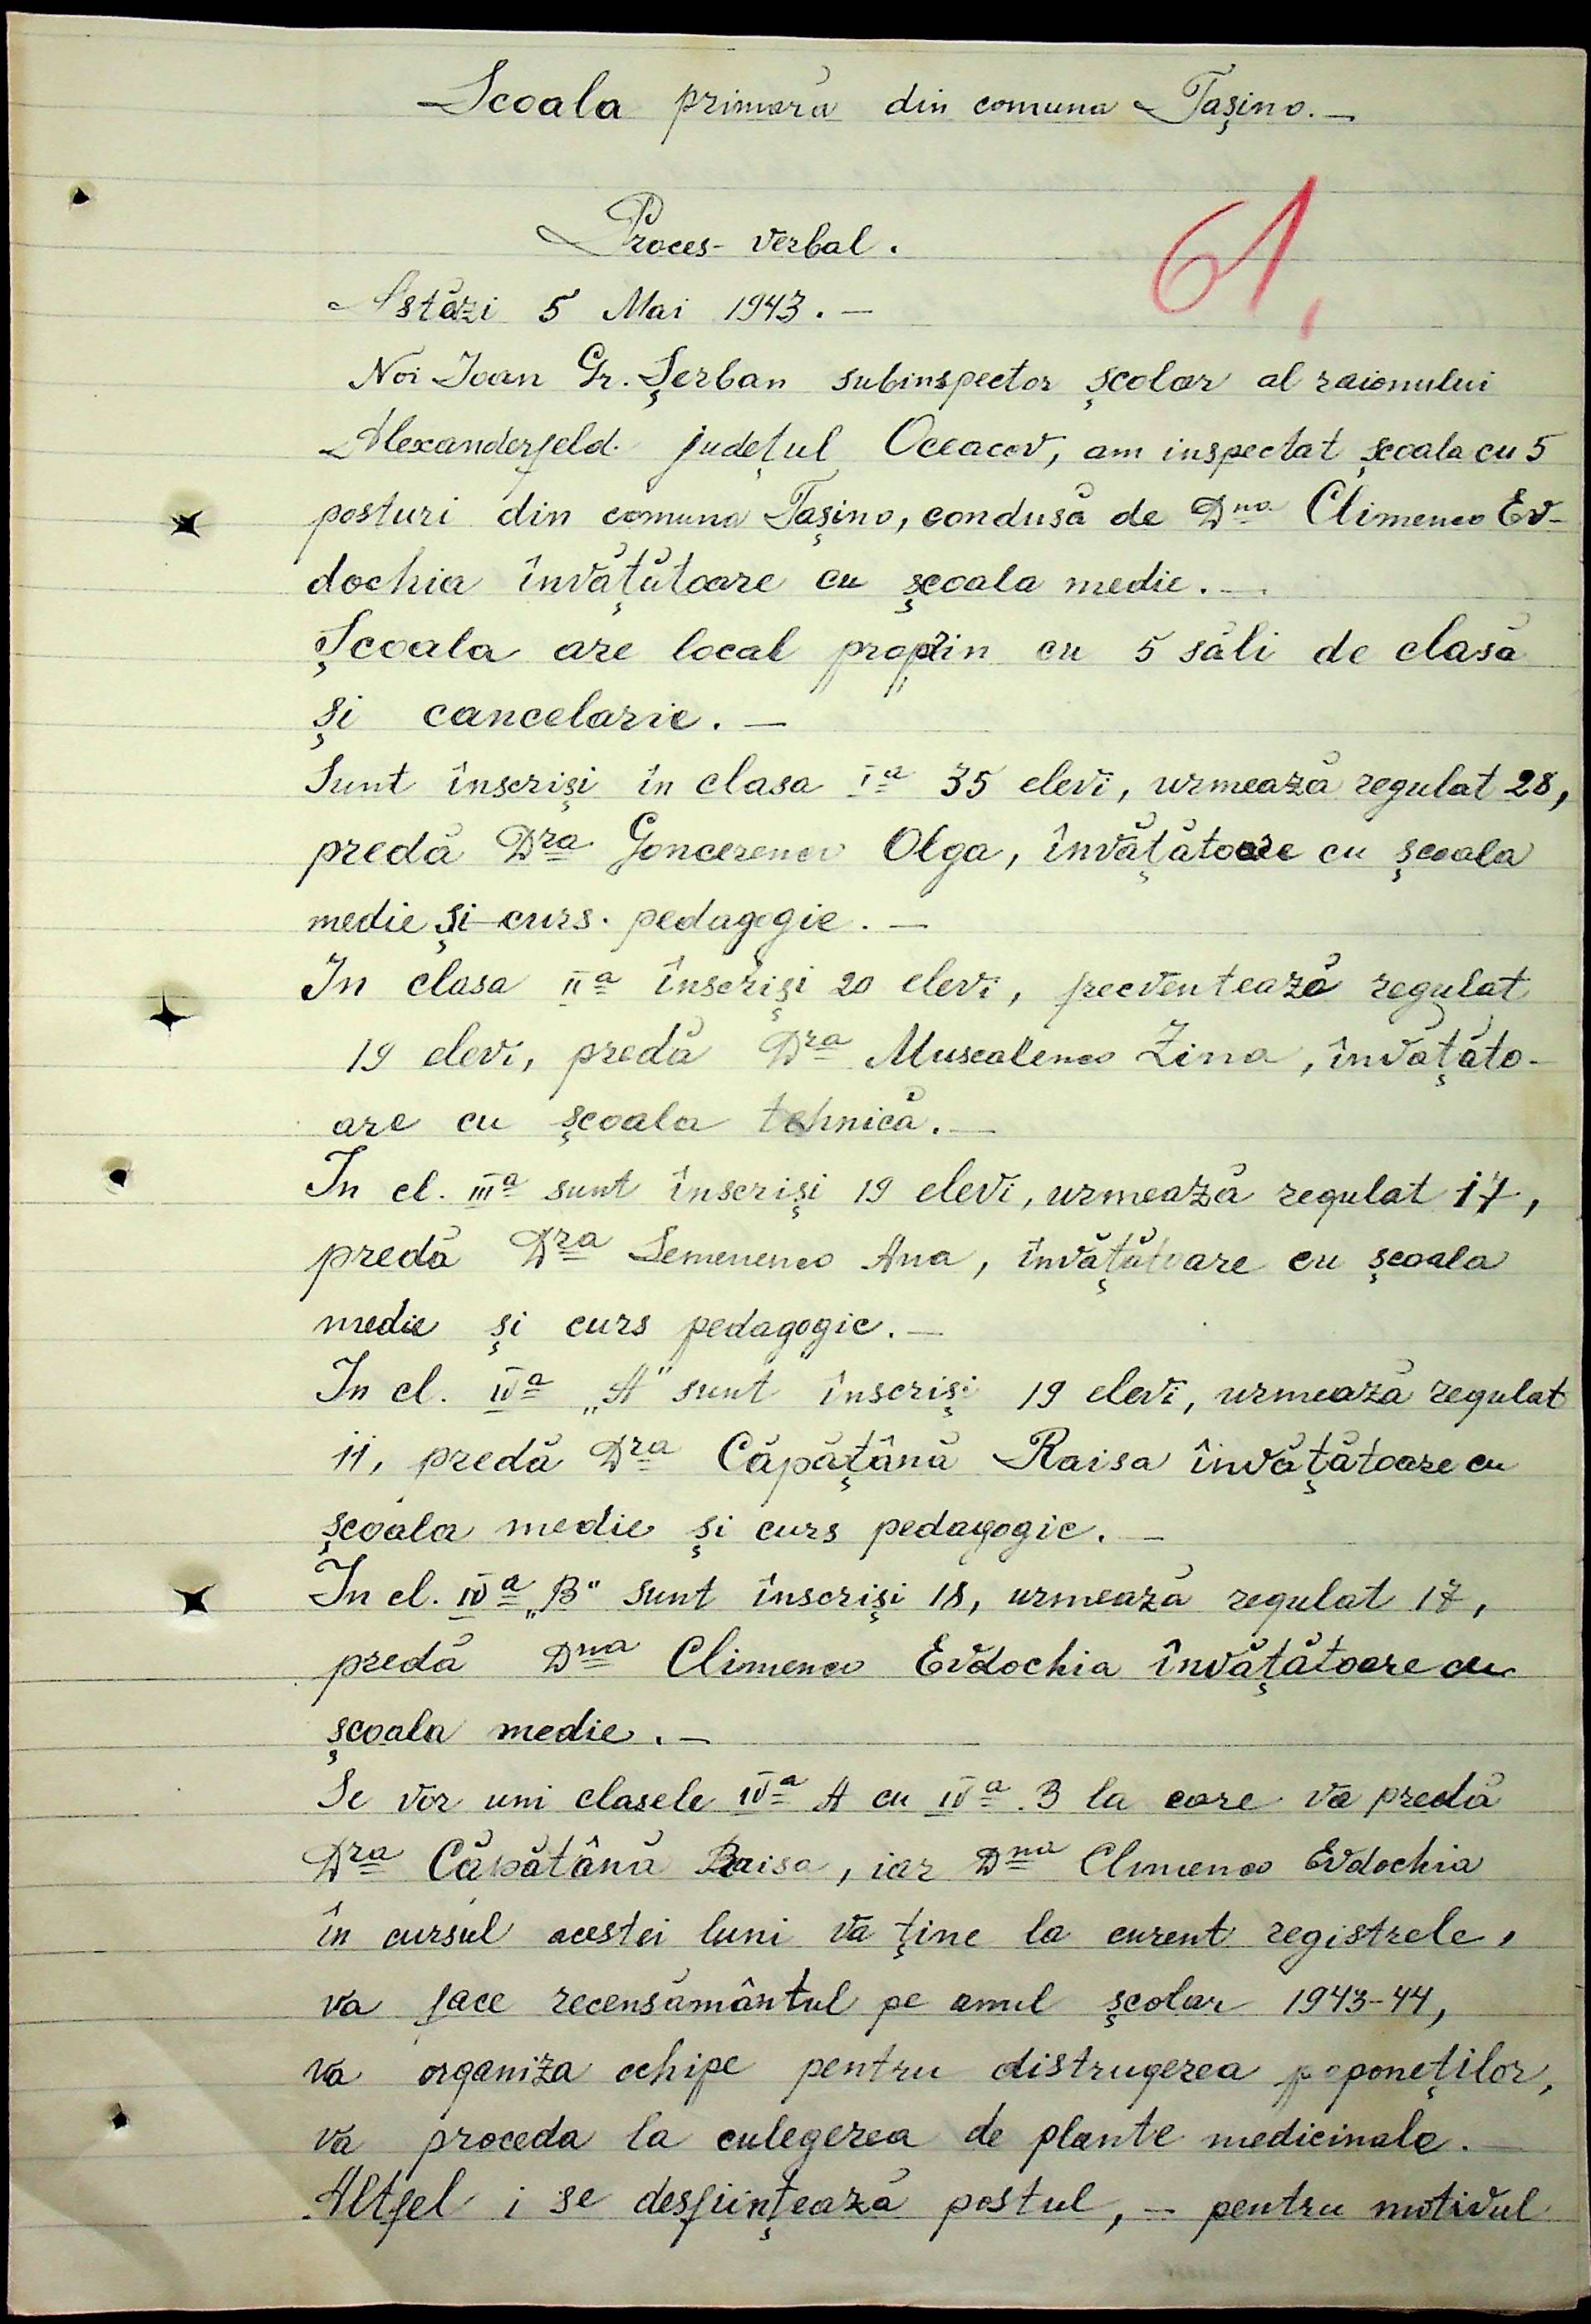 Scoala primară din comuna Tașino. —
61,
Proces-verbal.
Astăzi 5 Mai 1943. —
Noi Ioan Gr. Șerban subinspector școlar al raionului
Alexanderfeld. județul Oceacov, am inspectat școala cu 5
posturi din comuna Tașino, condusă de Dna Climenco Ev-
dochia învățătoare cu școala medie. —
Școala are local propriu cu 5 săli de clasă
și cancelarie. —
Sunt înscriși în clasa Ia 35 elevi, urmează regulat 28,
predă Dra Goncerenco Olga, învățătoare cu școala
medie și curs. pedagogie. —
In clasa IIa înscriși 20 elevi, frecventează regulat
19 elevi, predă Dra Muscalenco Zina, învățăto-
are cu școala tehnică. —
In cl. IIIa sunt înscriși 19 elevi, urmează regulat 17,
predă Dra Semenenco Ana, învățătoare cu școala
medie și curs pedagogic. —
In cl. IVa „A" sunt înscriși 19 elevi, urmează regulat
11, predă Dra Căpățână Raisa învățătoare cu
școala medie și curs pedagogic. —
In cl. IVa „B" sunt înscriși 18, urmează regulat 17,
predă Dna Climenco Evdochia învățătoare cu
școala medie. —
Se vor uni clasele IVa A cu IVa B la care va predă
Dra Căpătână Raisa, iar Dna Climenco Evdochia
în cursul acestei luni va ține la curent registrele,
va face recensământul pe anul școlar 1943-44,
va organiza echipe pentru distrugerea poponeților,
va proceda la culegerea de plante medicinale. —
Altfel i se desființează postul, — pentru motivul